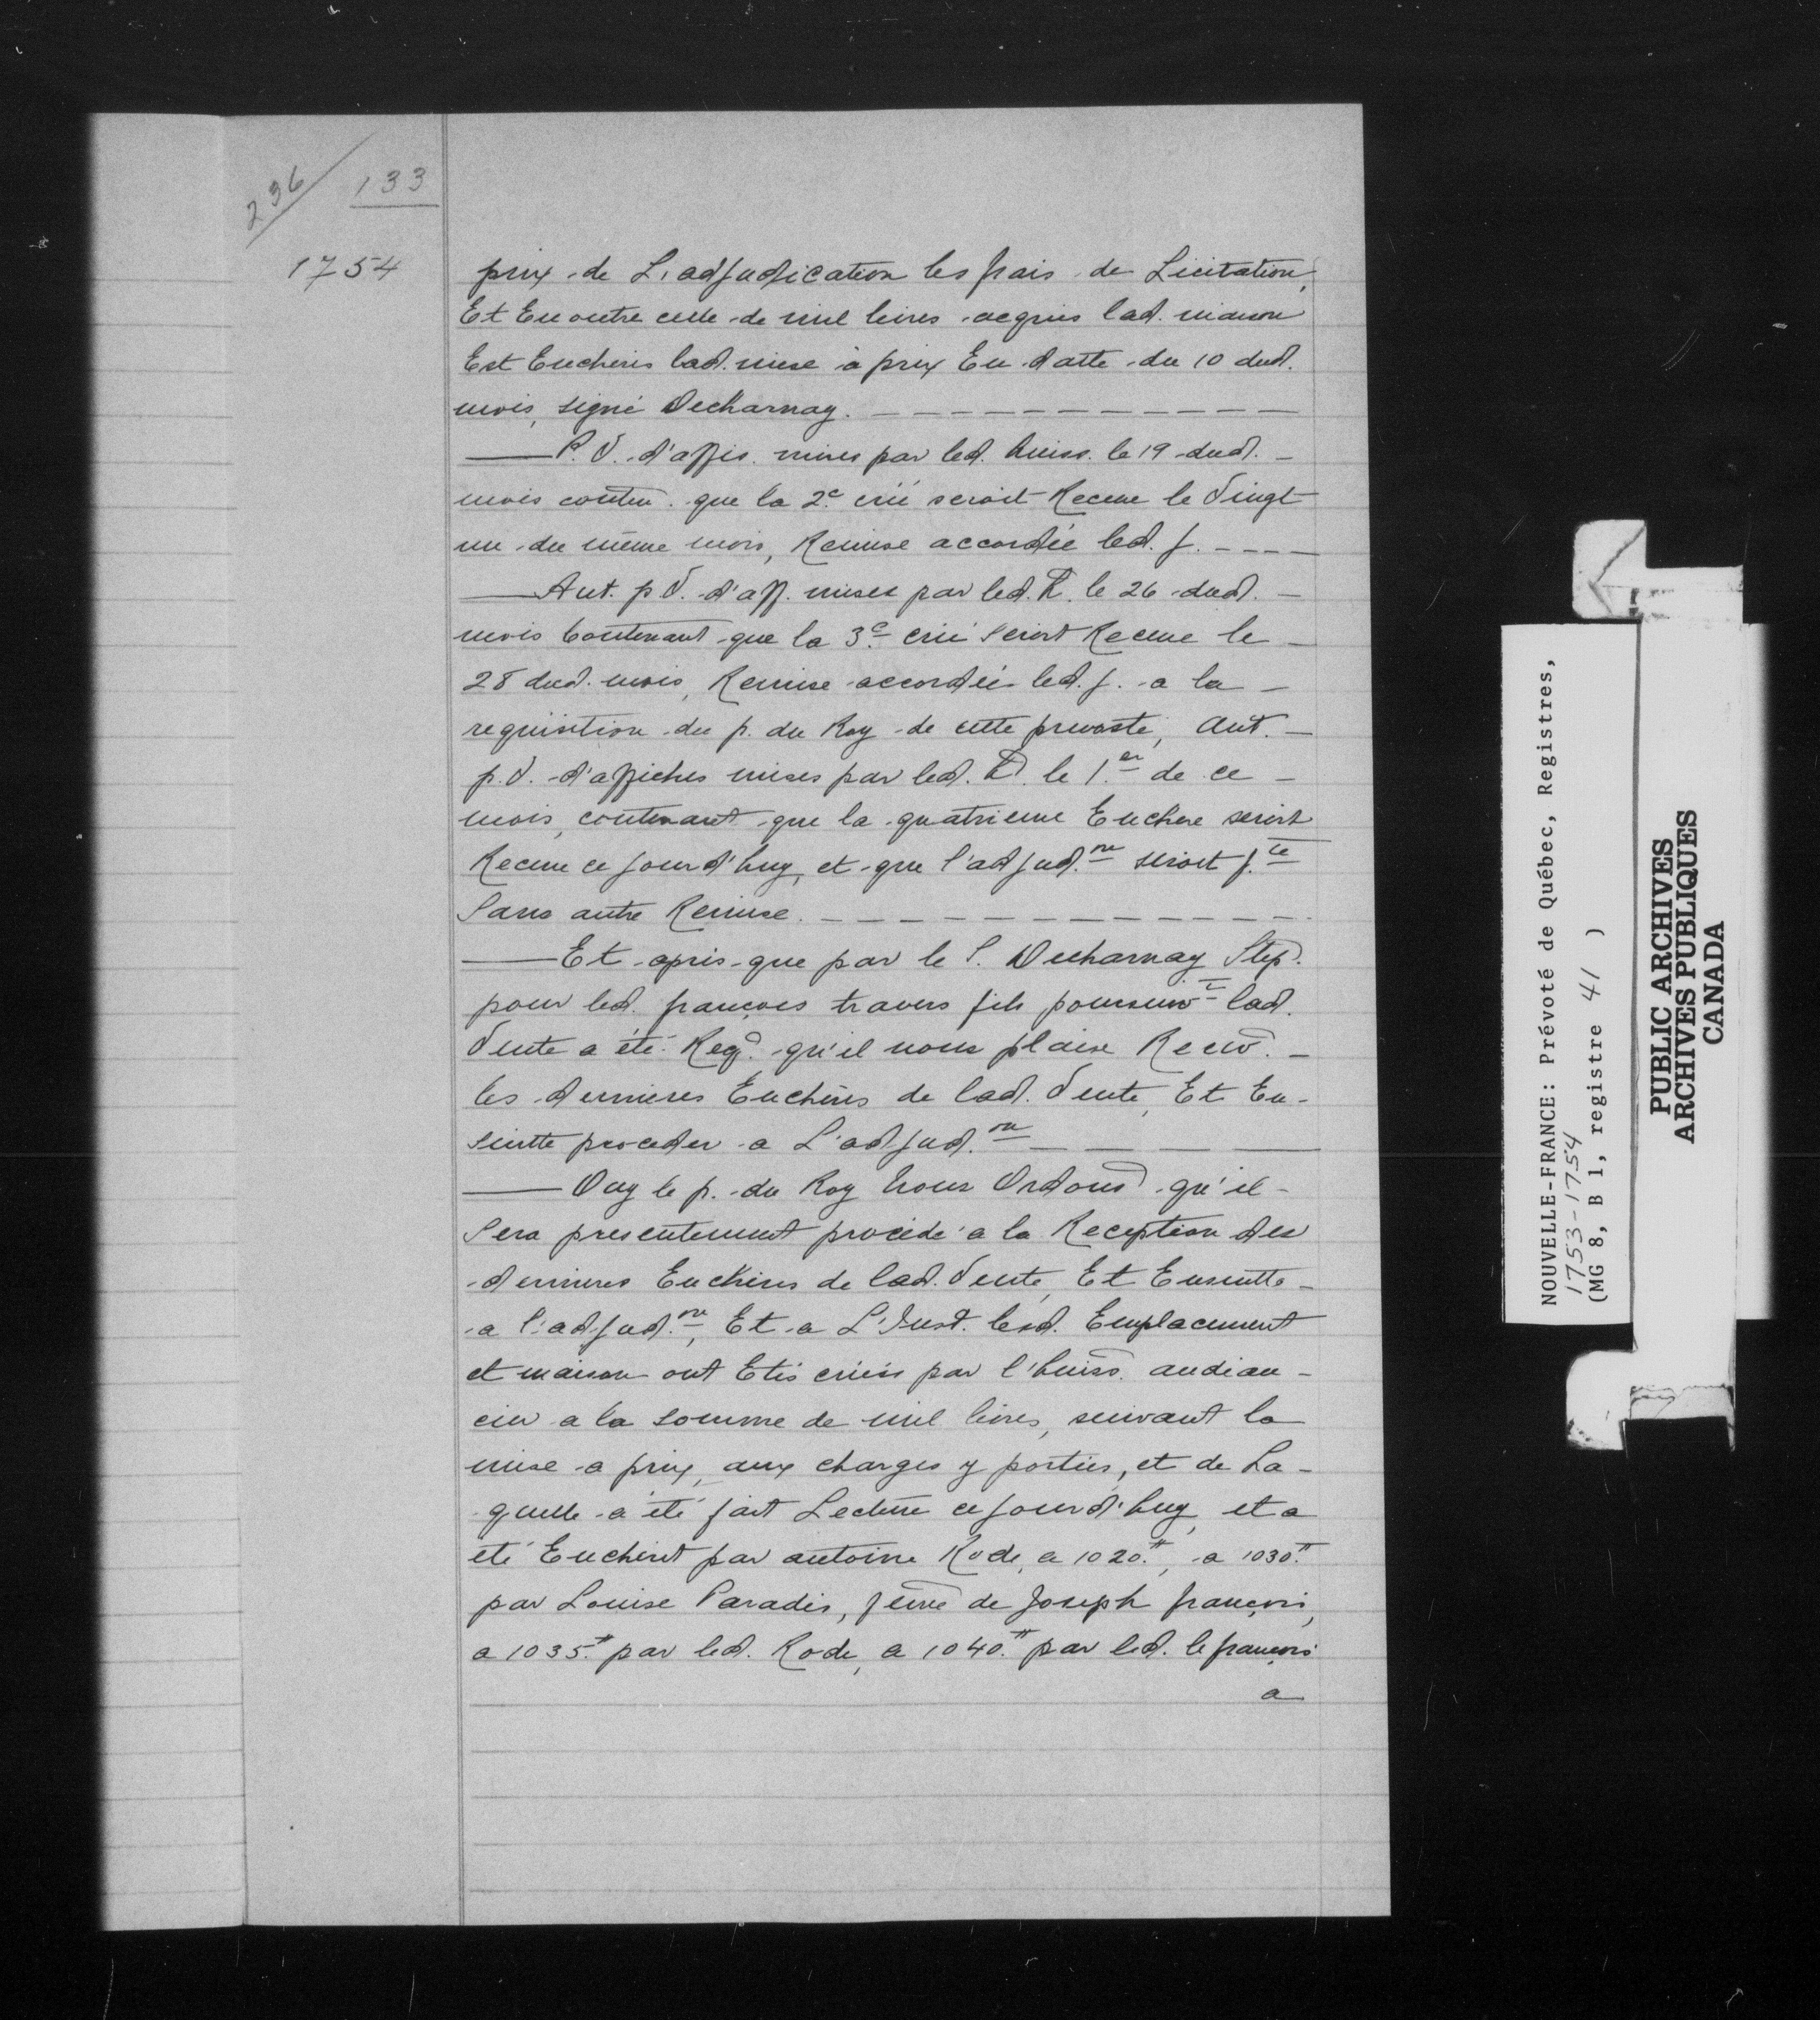 236
133
1754
prix de L'adjudication les frais de Licitation,
Et En outre celle de mil livres acquis lad. maison
Est Encheris lad. mise à prix En datte du 10 dud.
mois, signé Decharnay.
P.V. d'affis. mises par led. huiss. le 19 dud.
mois conten. que la 2e crié seroit Receue le vingt
un du même mois, Remise accordée led. j.
Aut. p V. d'aff. mises par led. h. le 26 dud.
mois Contenant que la 3e crié seroit Receue le
28 dud. mois, Remise accordée led. j. a la
requisition du p. du Roy de cette prevosté, aut.
p.V. d'affiches mises par led. h. le 1.er de ce
mois, contenant que la quatrieme Enchere seroit
Receue ce jourd'huy, et que l'adjud.on seroit f.te
Sans autre Remise.
Et après que par le S. Decharnay Stip.
pour led. françois travers fils poursuiv.t lad.
Vente a été Req. qu'il nous plaise Recev.
les dernieres Enchéres de lad. Vente, Et En-
suitte proceder a L'adjud.on
Ouy le p. du Roy Nous Ordons qu'il
Sera presentement procédé a la Reception des
dernieres Encheres de lad. Vente, Et Ensuitte
a l'adjud.on, Et a L'Inst. lesd. Emplacement
et maison ont Etés criés par l'huiss. audian-
cier a la somme de mil livres, suivant la
mise a prix, aux charges y portées, et de La-
quelle a été fait Lecture ce jourd'huy, et a
été Encherit par antoine Rode, a 1020.tt, a 1030.tt
par Louise Paradis, feme de Joseph françois,
a 1035.tt par led. Rode, a 1040.tt par led. le françois
a
NOUVELLE-FRANCE: Prévoté de Québec, Registres,
1753-1754
(MG 8, B 1, registre 41 )
PUBLIC ARCHIVES
ARCHIVES PUBLIQUES
CANADA